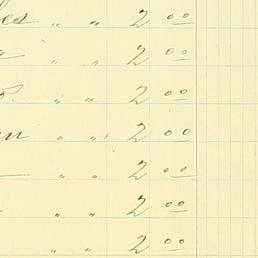 " " 2 00
" " 2 00
" " 2 00
" " 2 00
" " 2 00
" " 2 00
" " 2 00